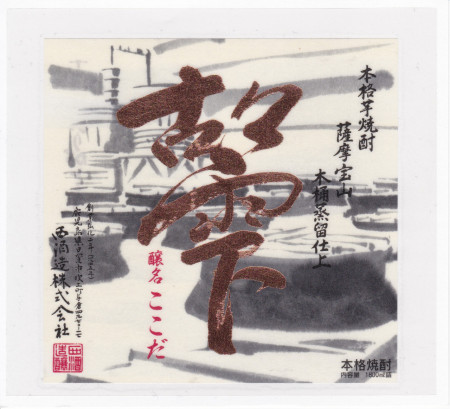 本格芋焼酎
薩摩宝山
木桶蒸留仕上
雫
醸名 ここだ
西酒造株式会社
本格焼酎
内容量 1800ml詰